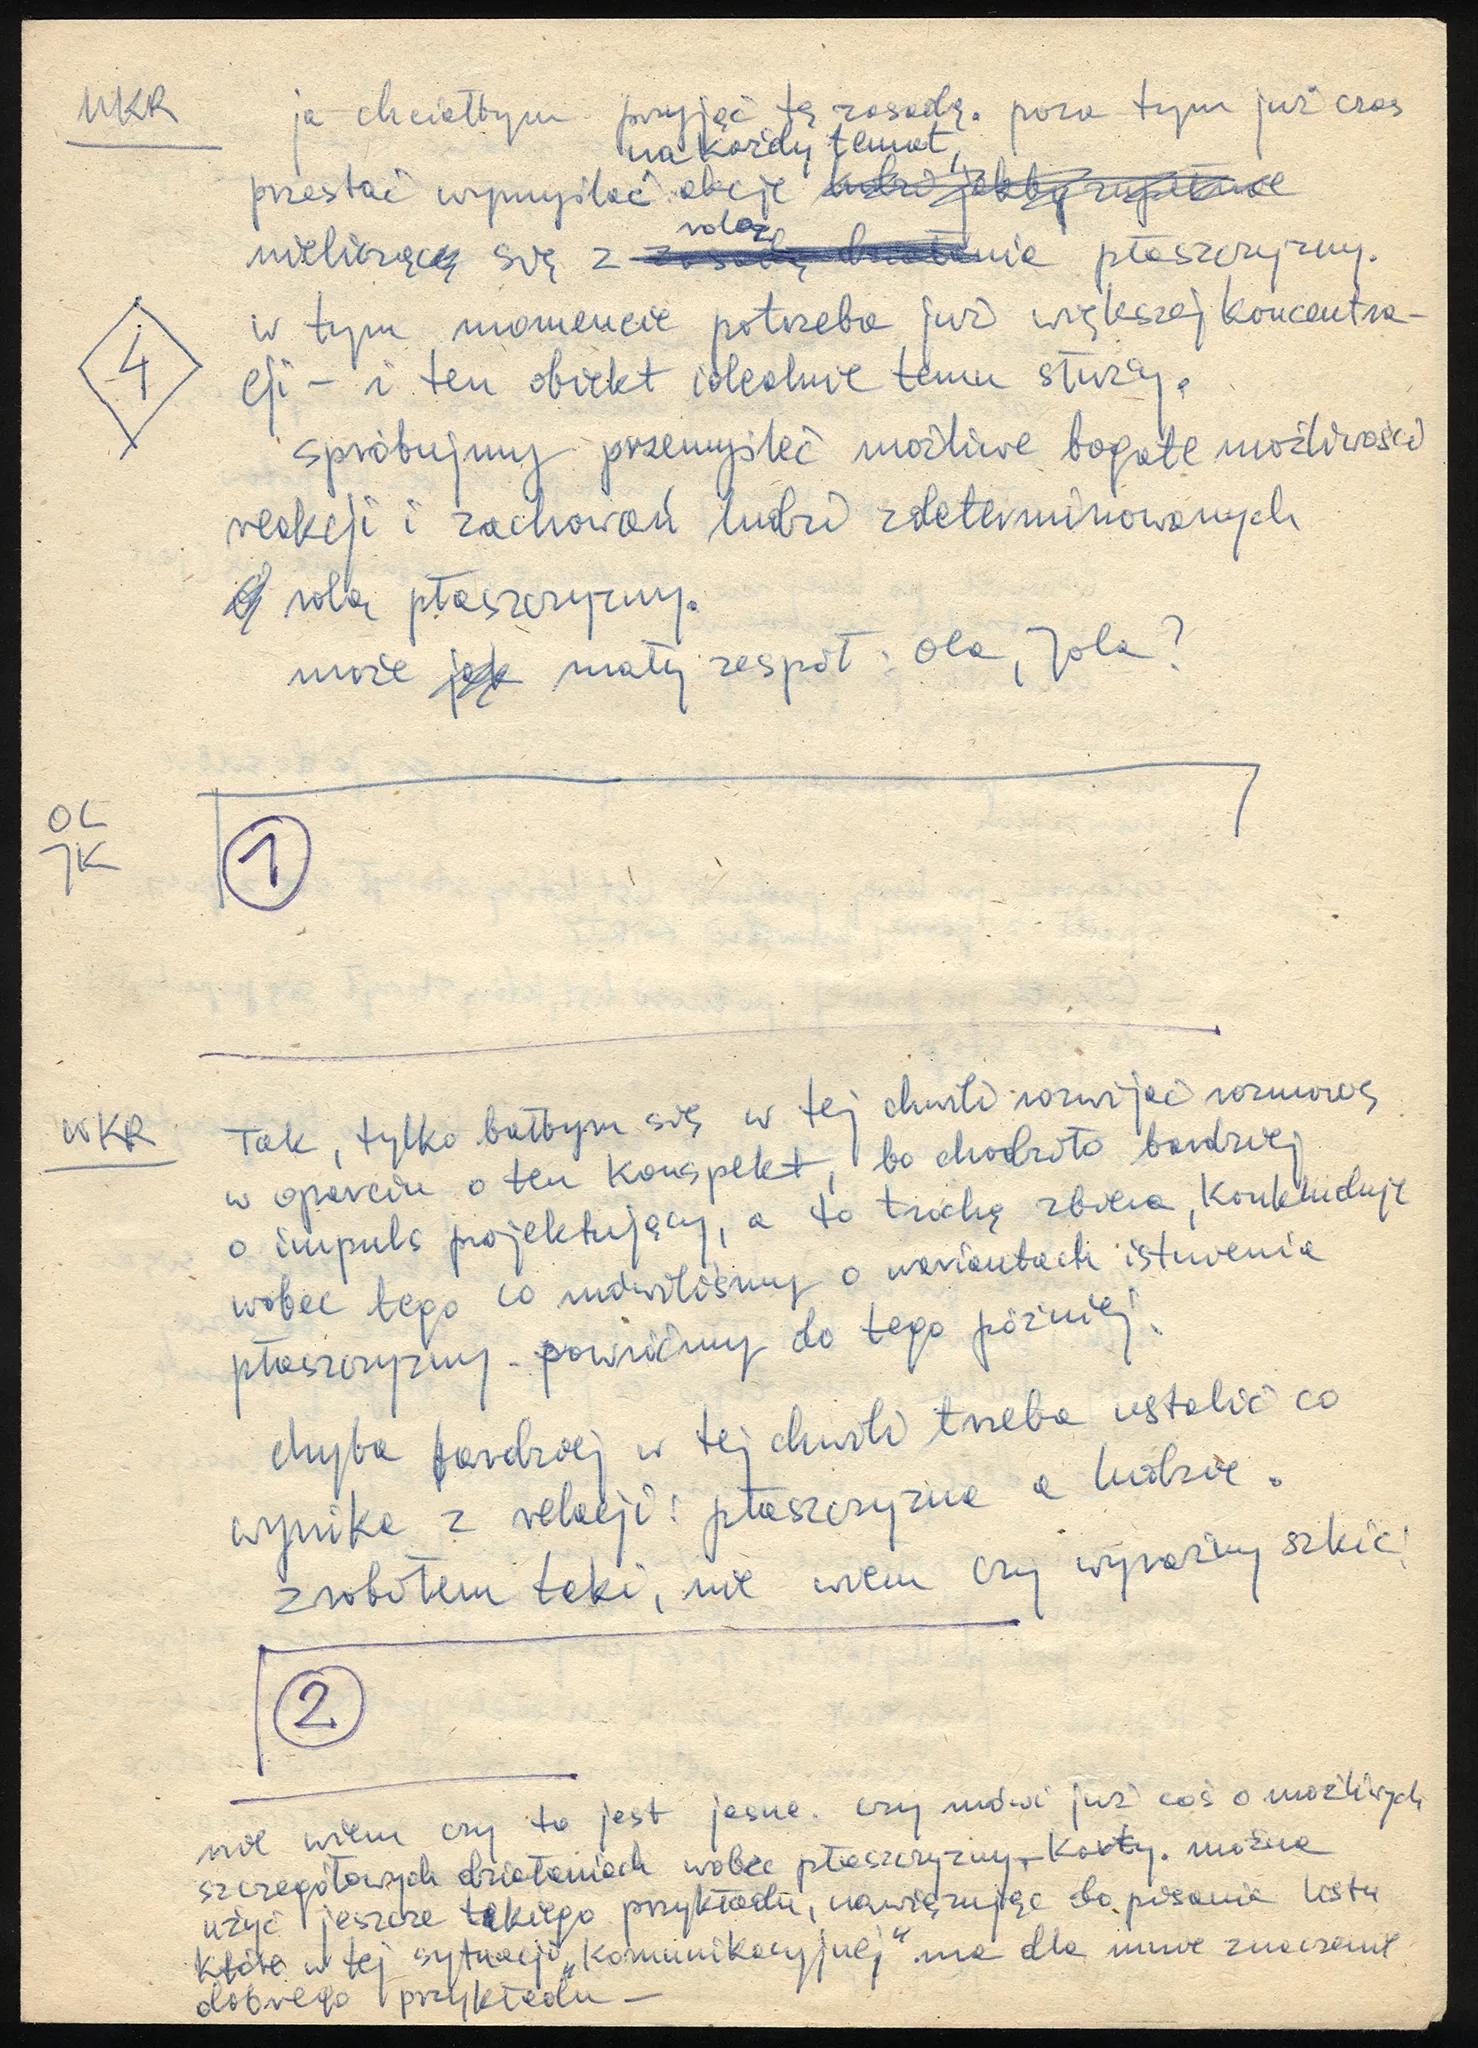 WKR
ja chciałbym przyjąć tę zasadę. poza tym już czas
na każdy temat,
przestać wymyślać akcje
rolą
nieliczące się z zasadą działania płaszczyzny.
w tym momencie potrzeba już większej koncentra-
4
cji – i ten obiekt idealnie temu służy.
spróbujmy przemyśleć możliwe bogate możliwości
reakcji i zachowań ludzi zdeterminowanych
rolą płaszczyzny.
może jak mały zespół: Ola, Jola?
OL
JK
1
WKR
Tak, tylko bałbym się w tej chwili rozwijać rozmowę
w oparciu o ten konspekt, bo chodziło bardziej
o impuls projektujący, a to trochę zbiera, konkluduje
wobec tego co mówiliśmy o wariantach istnienia
płaszczyzny – powróćmy do tego później.
chyba bardziej w tej chwili trzeba ustalić co
wynika z relacji: płaszczyzna a ludzie.
zrobiłem taki, nie wiem czy wyraźny szkic:
2
nie wiem czy to jest jasne. czy mówi już coś o możliwych
szczegółowych działaniach wobec płaszczyzny – karty. można
użyć jeszcze takiego przykładu, nawiązując do pisania listu
które w tej sytuacji „komunikacyjnej" ma dla mnie znaczenie
dobrego przykładu –